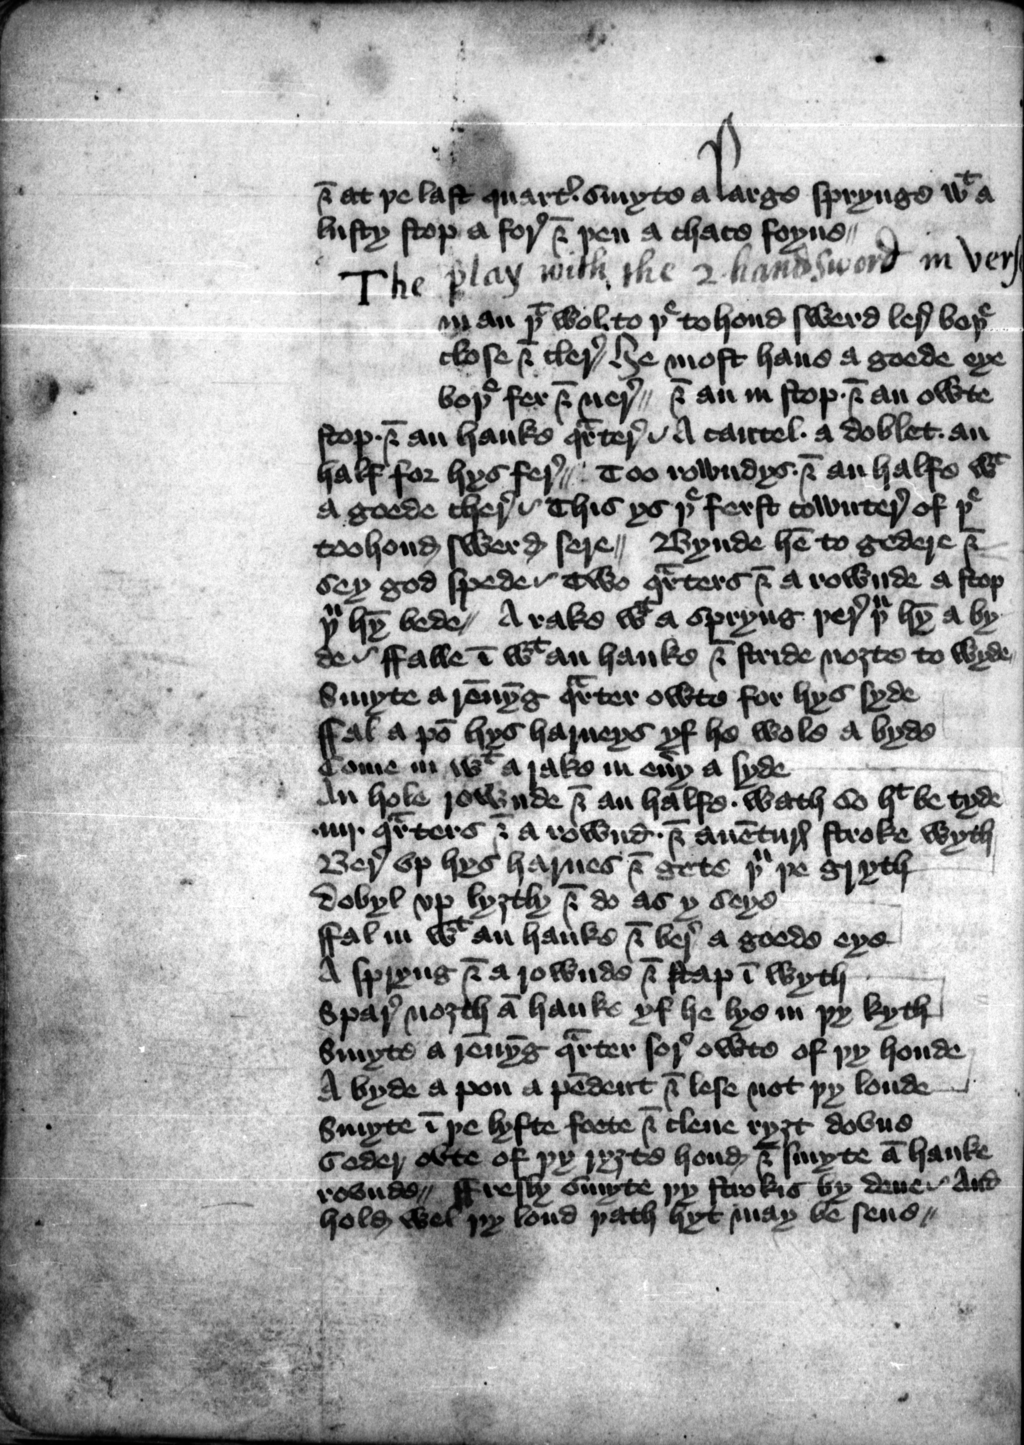 & at þe last quart̉. smyte a large sprynge wt a
lusty stop a for̉ & þen a chace foyne //
The play with the 2 hand Sword in Vers
m an þt wol to þe to hond swerd ler̉ boþe
close & cler̉ // He most haue a goede eye
boþe fer & ner̉ // & an in stop · & an owte
stop · & an hauke qrter̉ // A cantel · a doblet · an
half for hys fer̉ // Too rowndys · & an halfe wt
a goede cher̉ // This ys þe ferst cownter̉ of þe
too hond swerd sere // Bynde hē to gedere &
sey god spede // Two qrters & a rownde a stop
þu hȳ bede // A rake wt a spryng þer̉ þu hȳ a by
de // ffalle ī wt an hauke & stride noȝte to wyde
Smyte a rēnȳg qrter owte for hys syde
ffal a pō hys harneys yf he wole a byde
Come in wt a rake in eūy a syde
An hole rownde & an halfe · wath so ht be tyde
·iiij· qrters & a rownd · & auētur̉ stroke wyth
Ber̉ vp hys harnes & gete þu þe gryth
Dobyl vp lyȝtly & do as y seye
ffal in wt an hauke & ber̉ a goede eye
A spryng & a rownde & stap ī wyth
Spar̉ noȝth ā hauke yf he lye in þy kyth
Smyte a rēnȳg qrter for̉ owte of þy honde
A byde a pon a pēdent & lese not þy londe
Smyte ī þe lyfte foete & cleue ryȝt doune
Geder owte of þy ryȝte hond & smyte ā hauke
rounde // ffresly smyte þy strokis by dene // And
hold wel þy lond þath hyt may be sene //